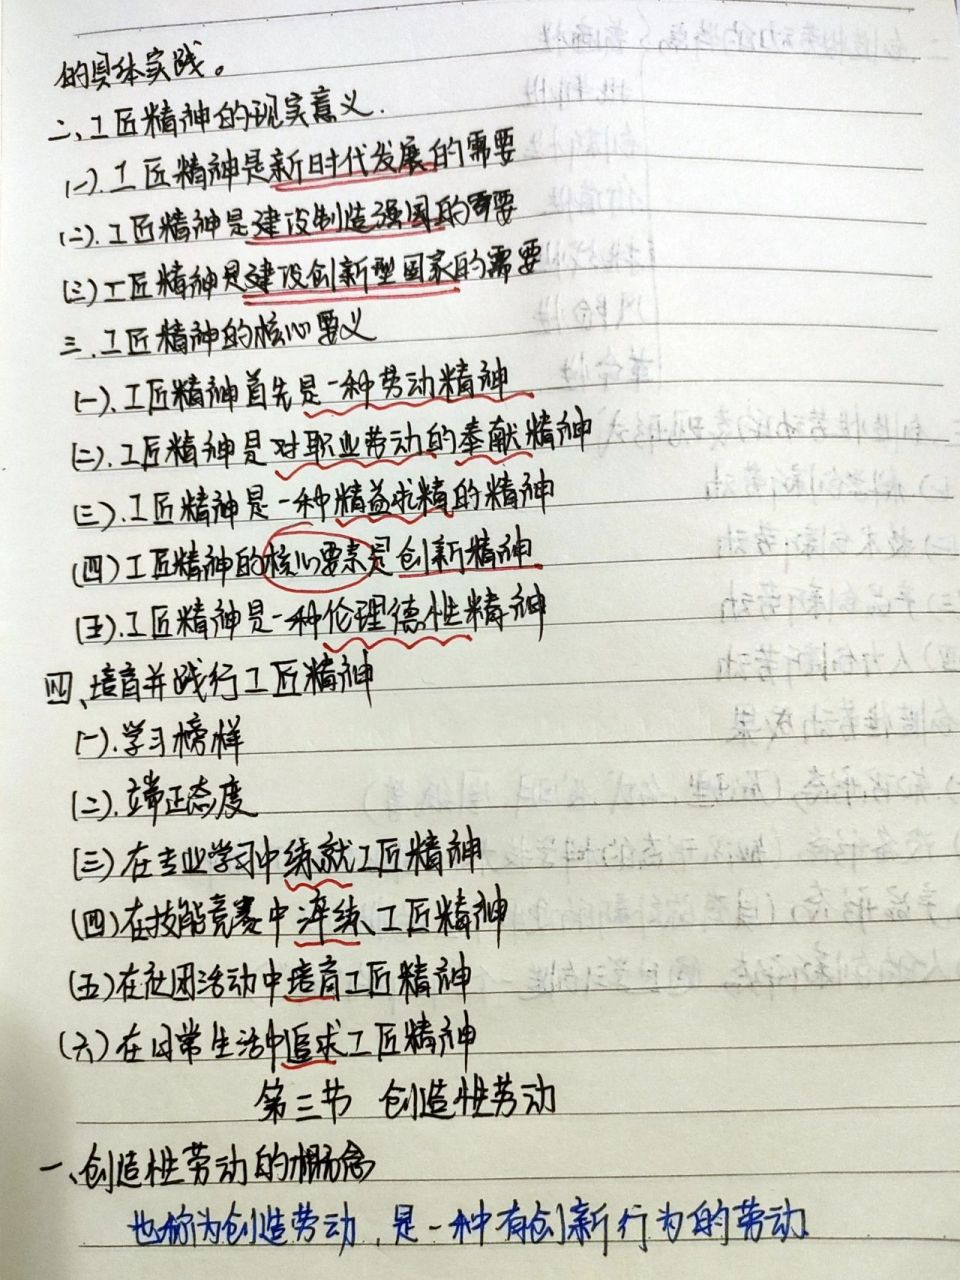 的具体实践。
二、工匠精神的现实意义.
(一).工匠精神是新时代发展的需要
(二).工匠精神是建设制造强国的需要
(三)工匠精神是建设创新型国家的需要
三.工匠精神的核心要义
(一).工匠精神首先是一种劳动精神
(二).工匠精神是对职业劳动的奉献精神
(三).工匠精神是一种精益求精的精神
(四)工匠精神的核心要素是创新精神
(五).工匠精神是一种伦理德性精神
四、培育并践行工匠精神
(一).学习榜样
(二).端正态度
(三)在专业学习中练就工匠精神
(四)在技能竞赛中淬练工匠精神
(五)在社团活动中培育工匠精神
(六)在日常生活中追求工匠精神
第三节 创造性劳动
一、创造性劳动的概念
也称为创造劳动,是一种有创新行为的劳动.